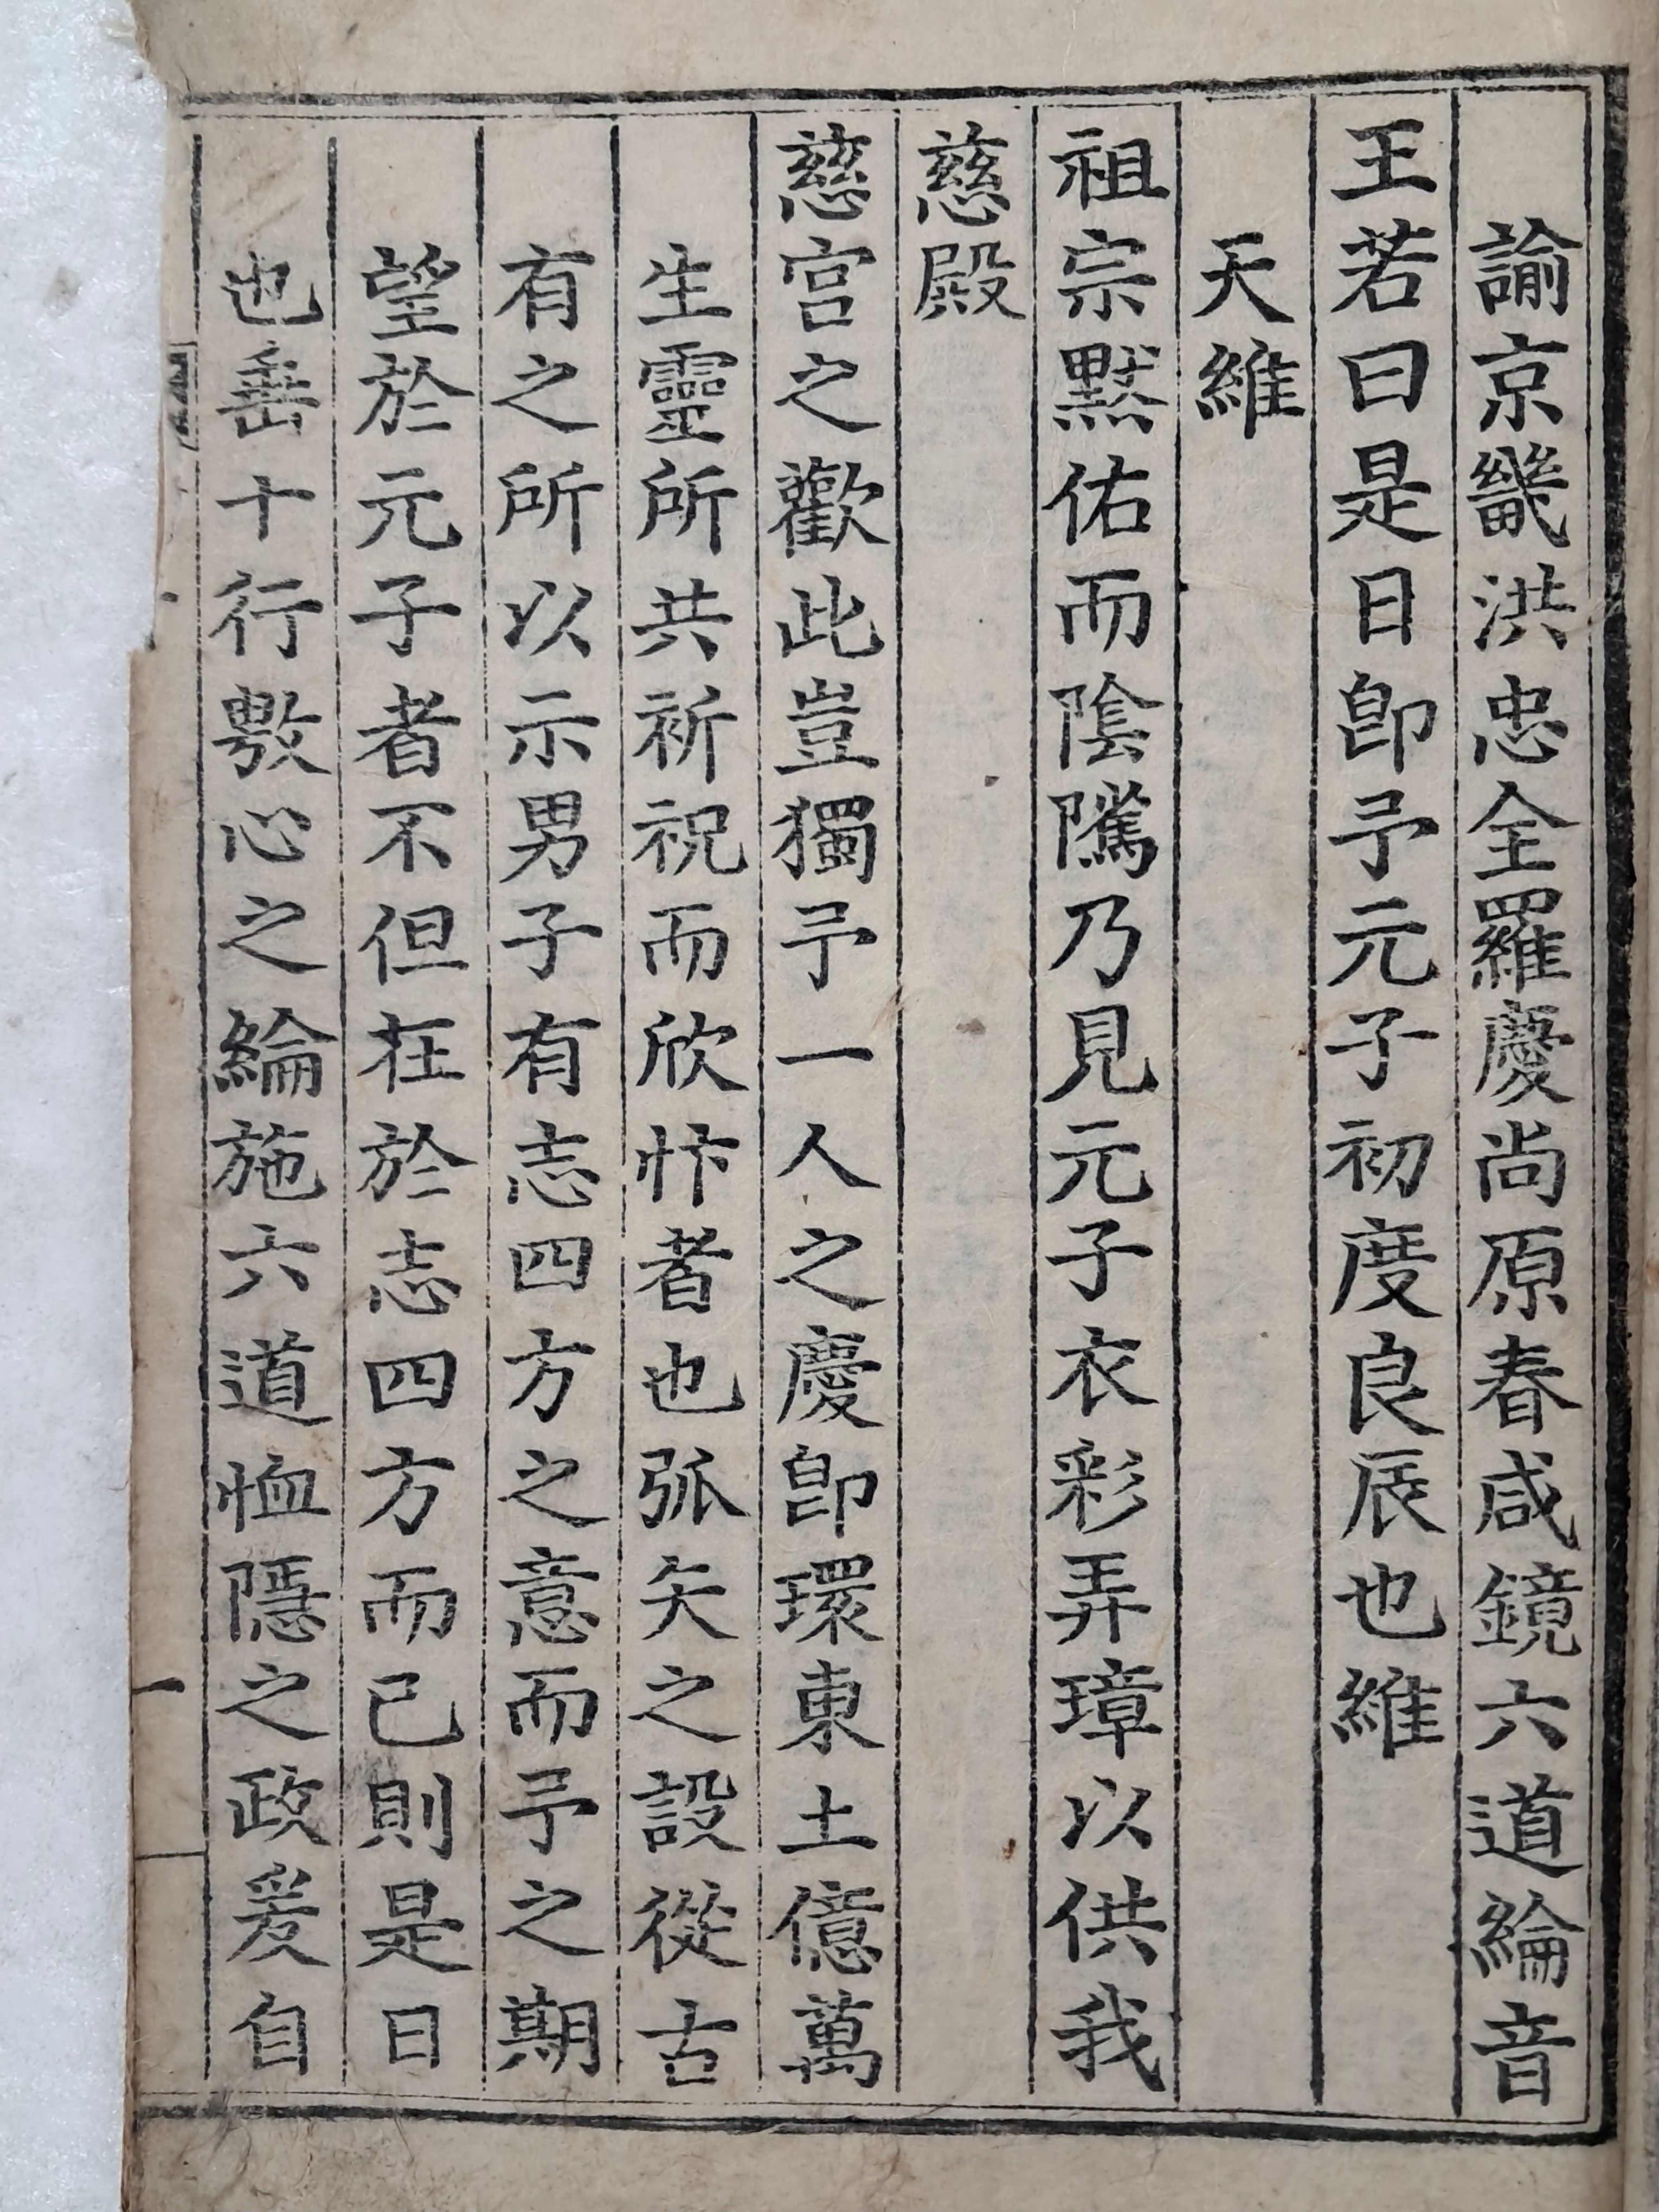 諭京畿洪忠全羅慶尙原春咸鏡六道綸音
王若曰是日卽予元子初度良辰也維
天維
祖宗黙佑而陰隲乃見元子衣彩弄璋以供我
慈殿
慈宮之歡此豈獨予一人之慶卽環東土億萬
生靈所共祈祝而欣忭者也弧矢之設從古
有之所以示男子有志四方之意而予之期
望於元子者不但在於志四方而已則是日
也垂十行敷心之綸施六道恤隱之政爰自
一